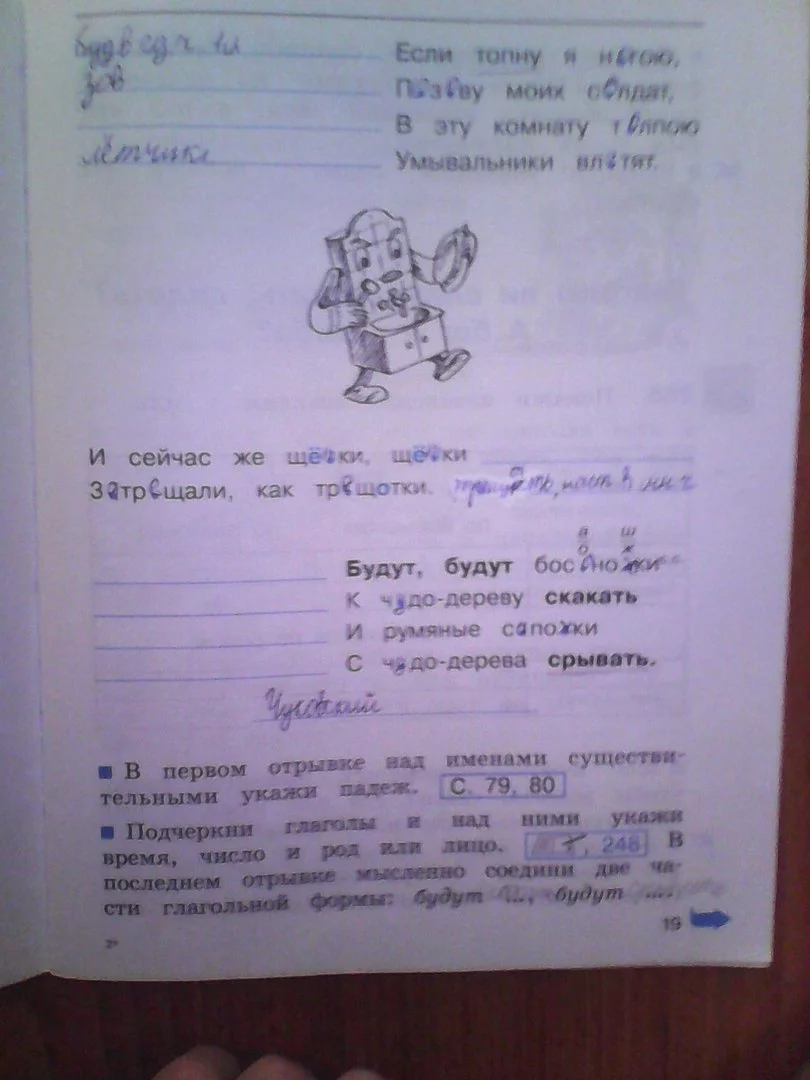 буд в ед ч 1л Если топну я ногою,
зов Позову моих солдат,
В эту комнату толпою
лётчики Умывальники влетят.
И сейчас же щётки, щётки
Затрещали, как трещотки.
а ш
о ж
Будут, будут босоножки
К чудо-дереву скакать
И румяные сапожки
С чудо-дерева срывать.
Чуковский
В первом отрывке над именами существи-
тельными укажи падеж. С. 79, 80
Подчеркни глаголы и над ними укажи
время, число и род или лицо. 248 В
последнем отрывке мысленно соедини две ча-
сти глагольной формы: будут ..., будут ....
19